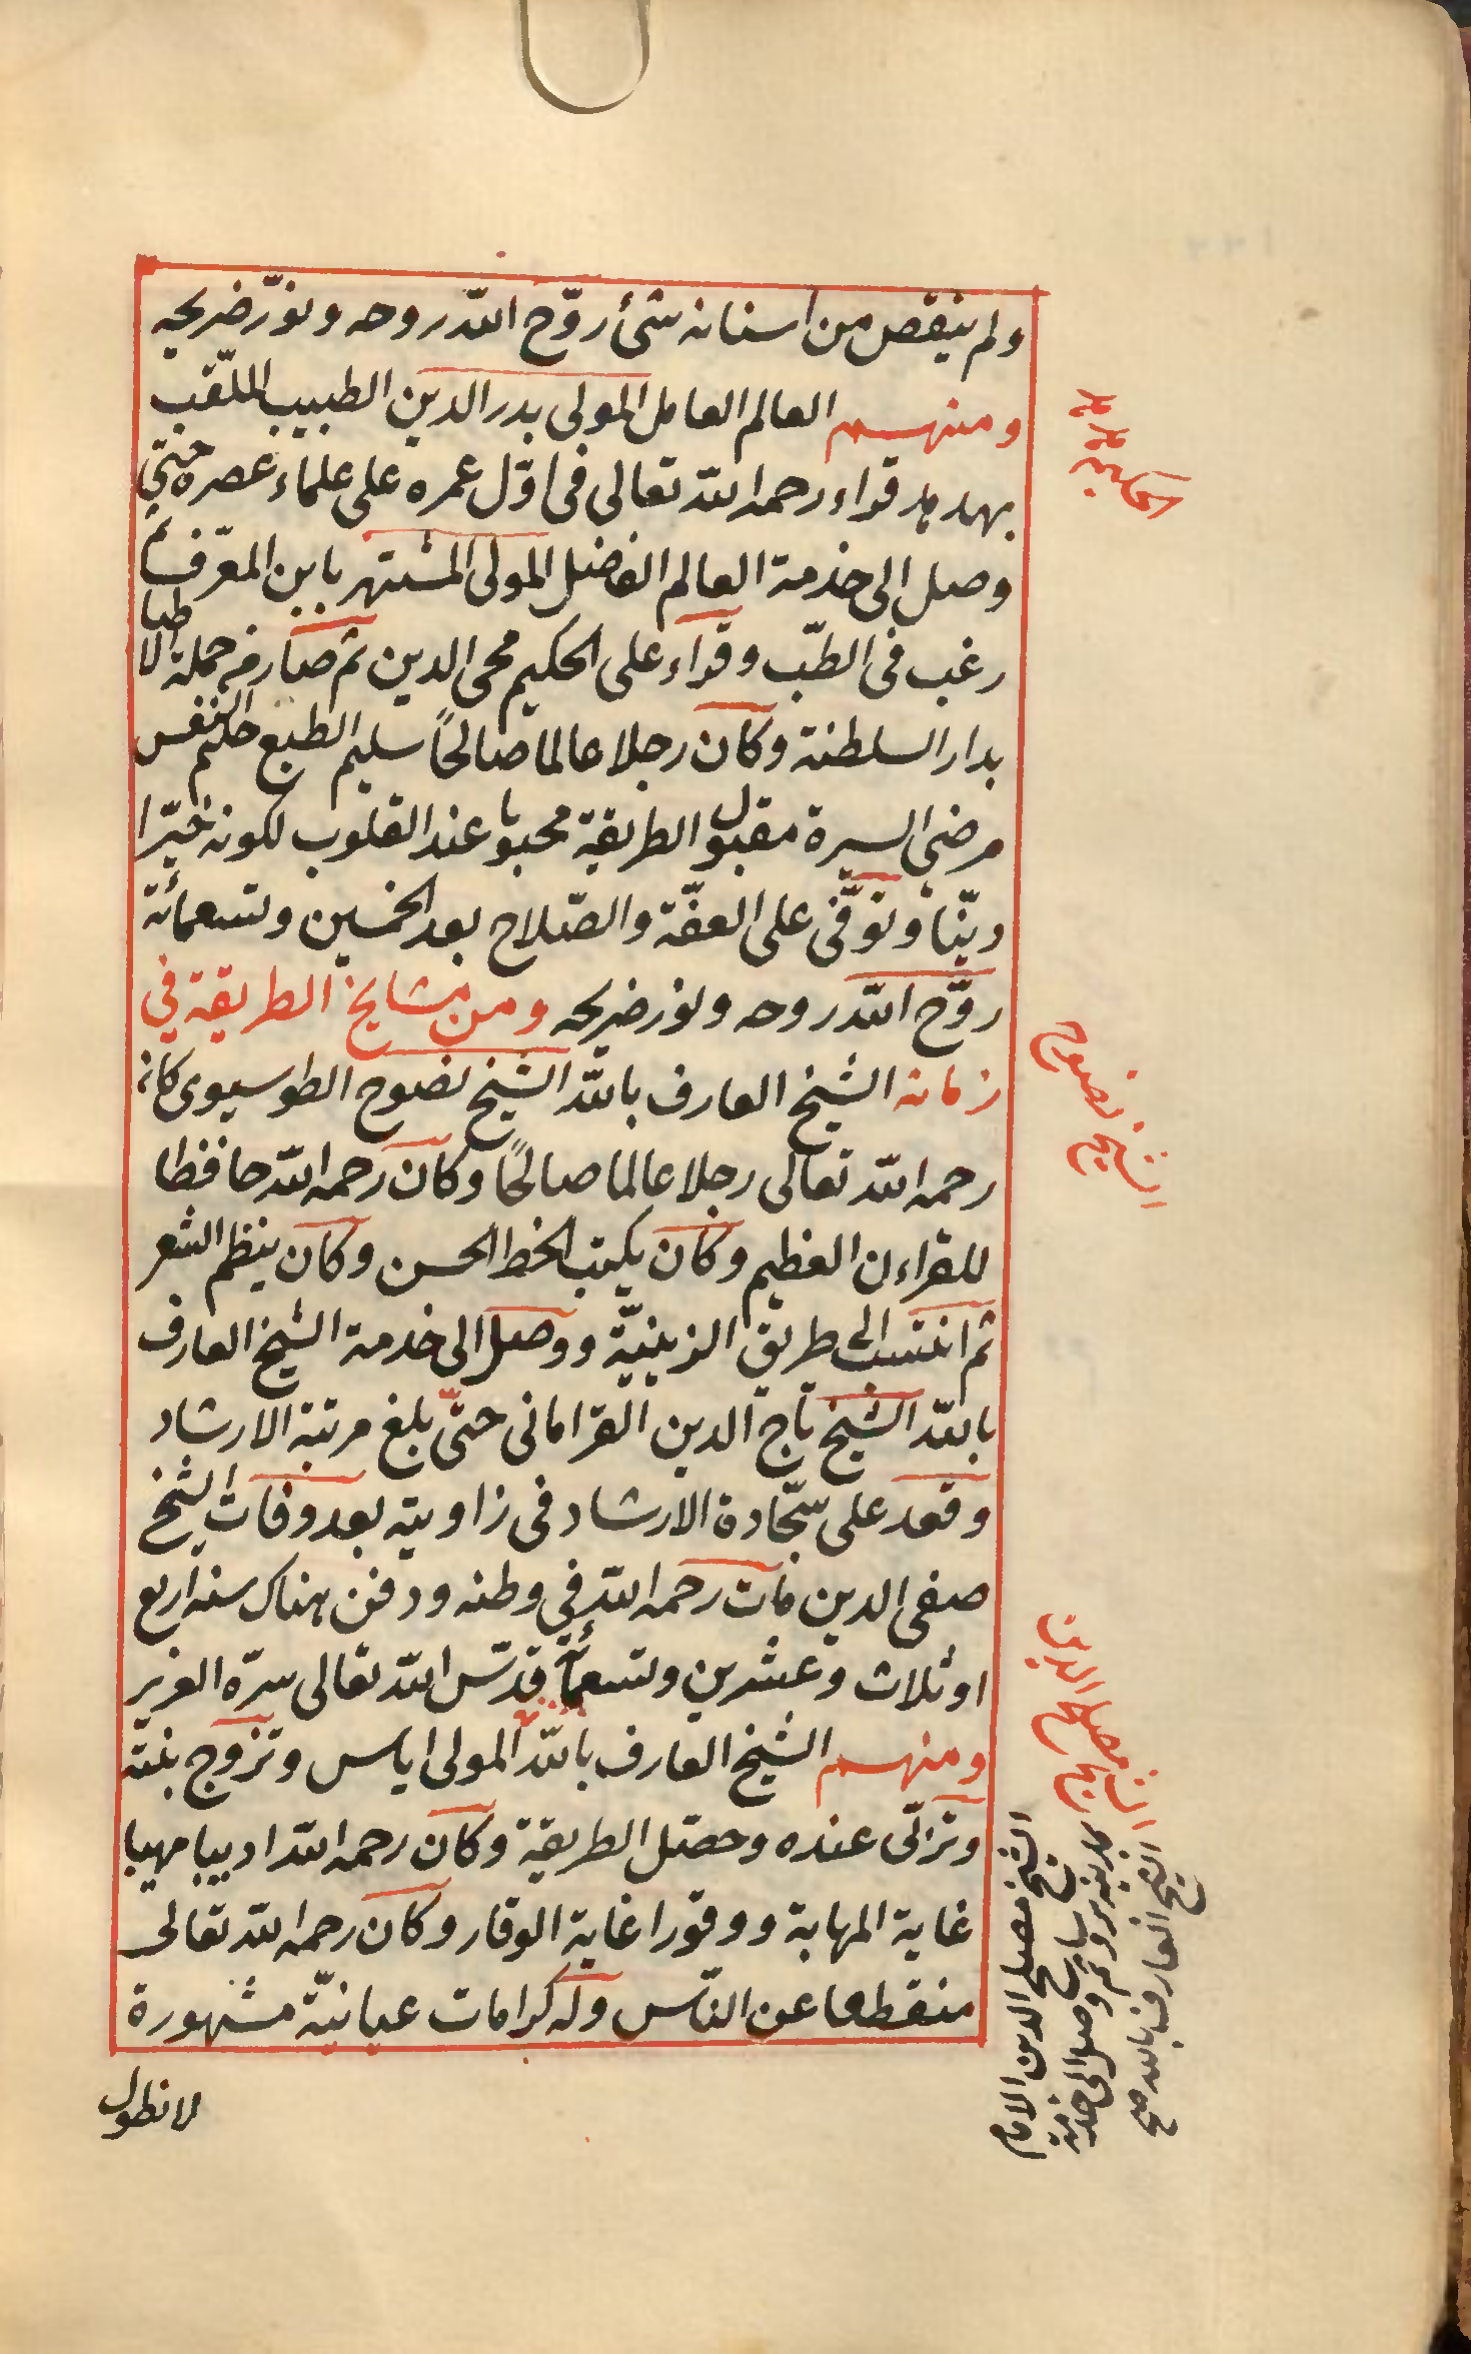 ولم ينقص من اسنانه شئ روّح الله روحه ونوّر ضريحه
ومنهم العالم العامل المولى بدر الدين الطبيب الملقّب
بهدهد قراء رحمه الله تعالى فى اوّل عمره على علماء عصره حتى
وصل الى خدمة العالم الفاضل المولى المشتهر بابن المعرّف ثم
رغب فى الطبّ وقراء على الحكيم محى الدين ثم صار من جملة الاطبا
بدار السلطنة وكان رجلا عالما صالحاً سليم الطبع حليم النفس
مرضى السيرة مقبول الطريقة محبوبا عند القلوب لكونه خيّرا
ديّنا وتوفّى على العفّة والصّلاح بعد الخمسين وتسعمائة
روّح الله روحه ونور ضريحه ومن مشايخ الطريقة في
زمانه الشيخ العارف بالله الشيخ نصوح الطوسيوى كان
رحمه الله تعالى رجلا عالما صالحًا وكان رحمه الله حافظا
للقراءن العظيم وكان يكتب الخط الحسن وكان ينظم الشعر
ثم انتسب الى طريق الزينيّة ووصل الى خدمة الشيخ العارف
بالله الشيخ تاج الدين القرامانى حتّى بلغ مرتبة الارشاد
وقعد على سجّادة الارشاد فى زاويته بعد وفات الشيخ
صفى الدين مات رحمه الله فى وطنه ودفن هناك سنه اربع
او ثلاث وعشرين وتسعمائة قدّس الله تعالى سرّه العزيز
ومنهم الشيخ العارف بالله المولى اياس وتزوج بنته
وتزكّى عنده وحصّل الطريقة وكان رحمه الله اديبا مهيبا
غاية المهابة ووقورا غاية الوقار وكان رحمه الله تعالى
منقطعا عن النّاس وله كرامات عيانيّة مشهورة
لا نطول
الحكيم هدهد
الشيخ نصوح
الشيخ مصلح الدين
الشيخ مصلح الدين الامام
ثم وصل الى خدمة
الشيخ العارف بالله صح